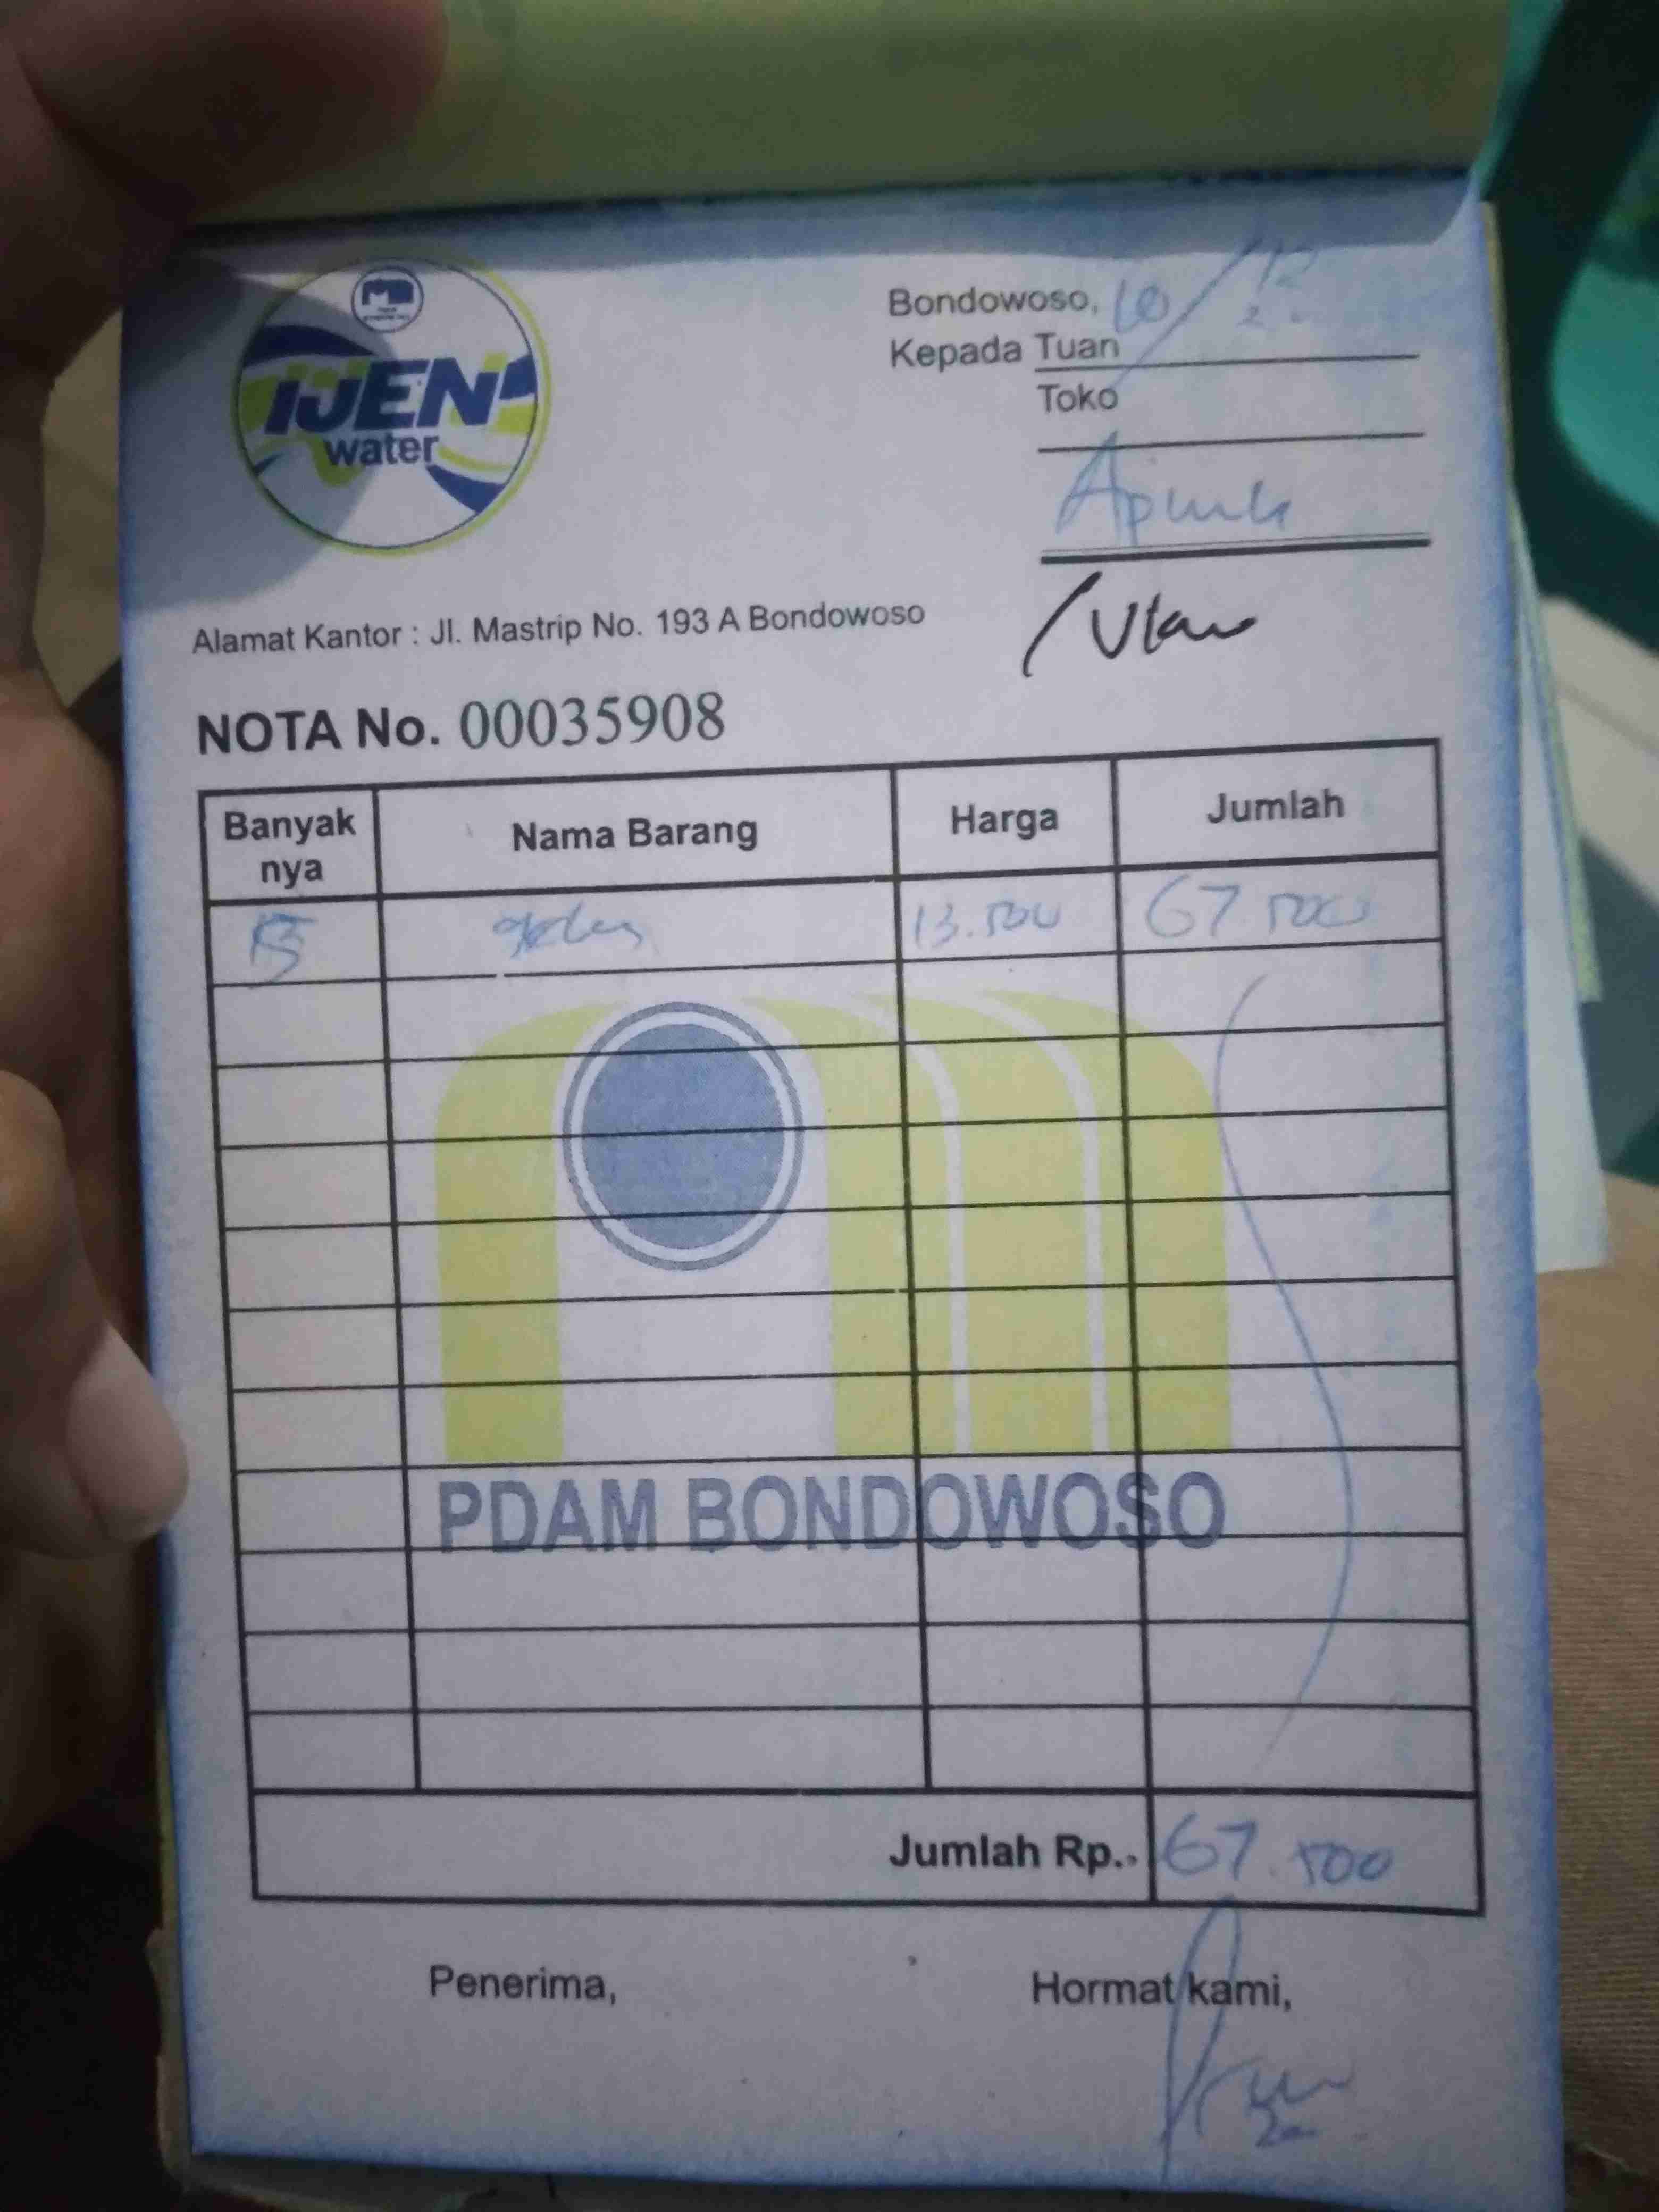 IJEN
water
Bondowoso, 10/12
Kepada Tuan
Toko
Alamat Kantor : Jl. Mastrip No. 193 A Bondowoso
NOTA No. 00035908
Banyak nya Nama Barang Harga Jumlah
5 13.500 67 500
PDAM BONDOWOSO
Jumlah Rp. 67.500
Penerima, Hormat kami,